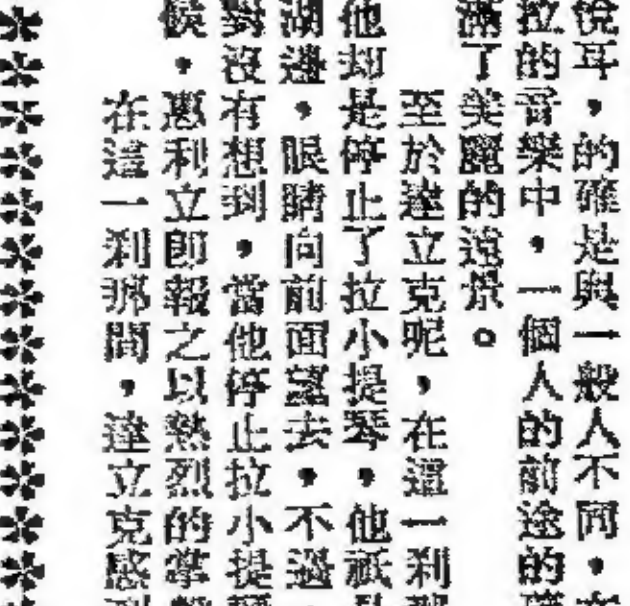 悅耳，的確是與一般人不同，
拉的音樂中，一個人的前途的
滿了美麗的遠景。
至於達立克呢，在這一剎那
他却是停止了拉小提琴，他祇是
湖邊，眼睛向前面望去，不過
對沒有想到，當他停止拉小提琴
候，惠利立即報之以熱烈的掌聲
在這一剎那間，達立克感到